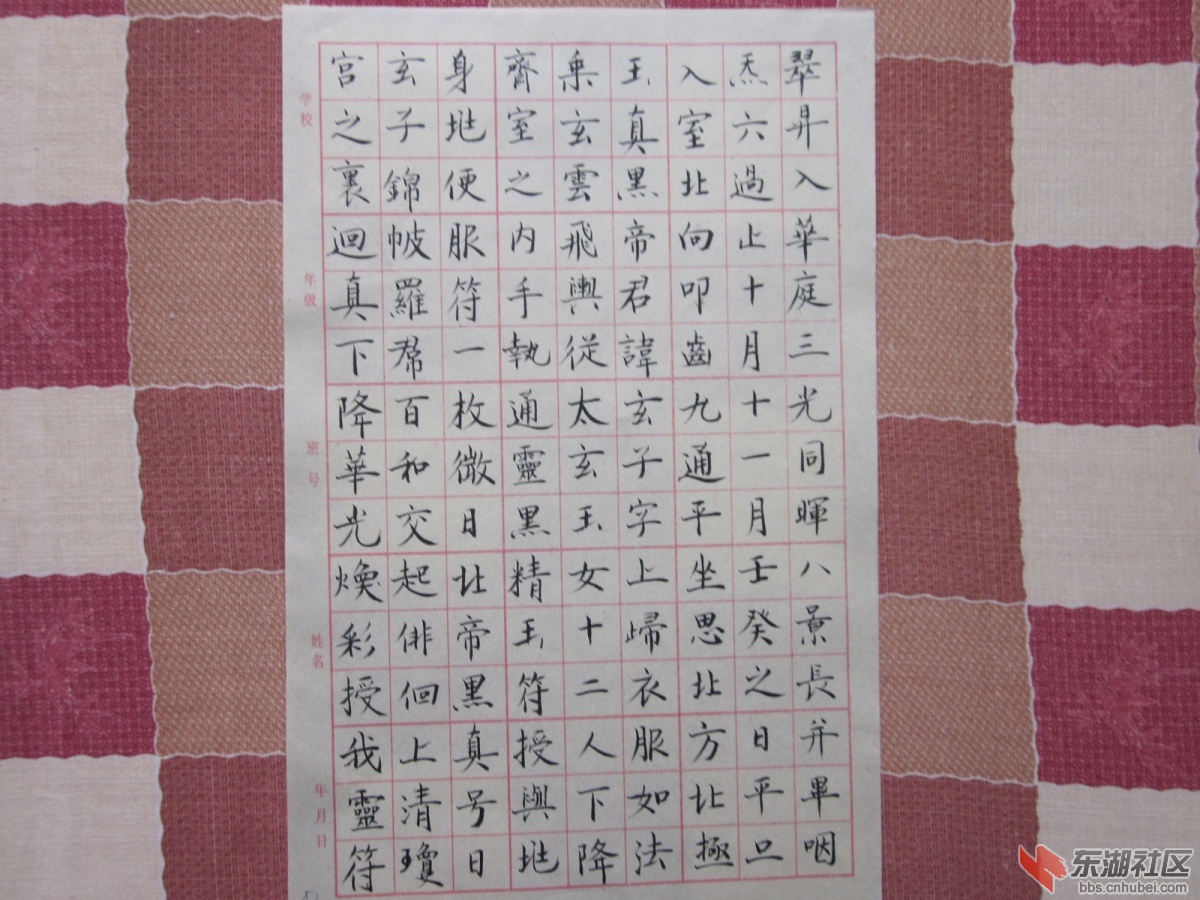 翠昇入華庭三光同暉八景長并畢咽
炁六過止十月十一月壬癸之日平旦
入室北向叩齒九通平坐思北方北極
玉真黒帝君諱玄子字上歸衣服如法
乗玄雲飛輿從太玄玉女十二人下降
齊室之内手執通靈黒精玉符授與地
身地便服符一枚微日北帝黒真号日
玄子錦帔羅帬百和交起俳徊上清瓊
宫之裏迴真下降華光煥彩授我靈符
学校
年级
班号
姓名
年月日
东湖社区
bbs.cnhubei.com